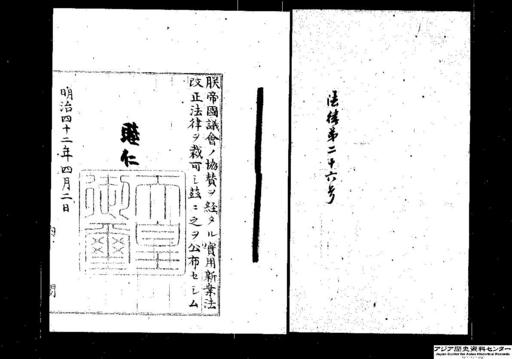 法律第二十六号
朕帝國議會ノ協賛ヲ経タル實用新案法
改正法律ヲ裁可シ茲ニ之ヲ公布セシム
睦仁
天皇御璽
明治四十二年四月二日
内閣
アジア歴史資料センター
Japan Center for Asian Historical Records